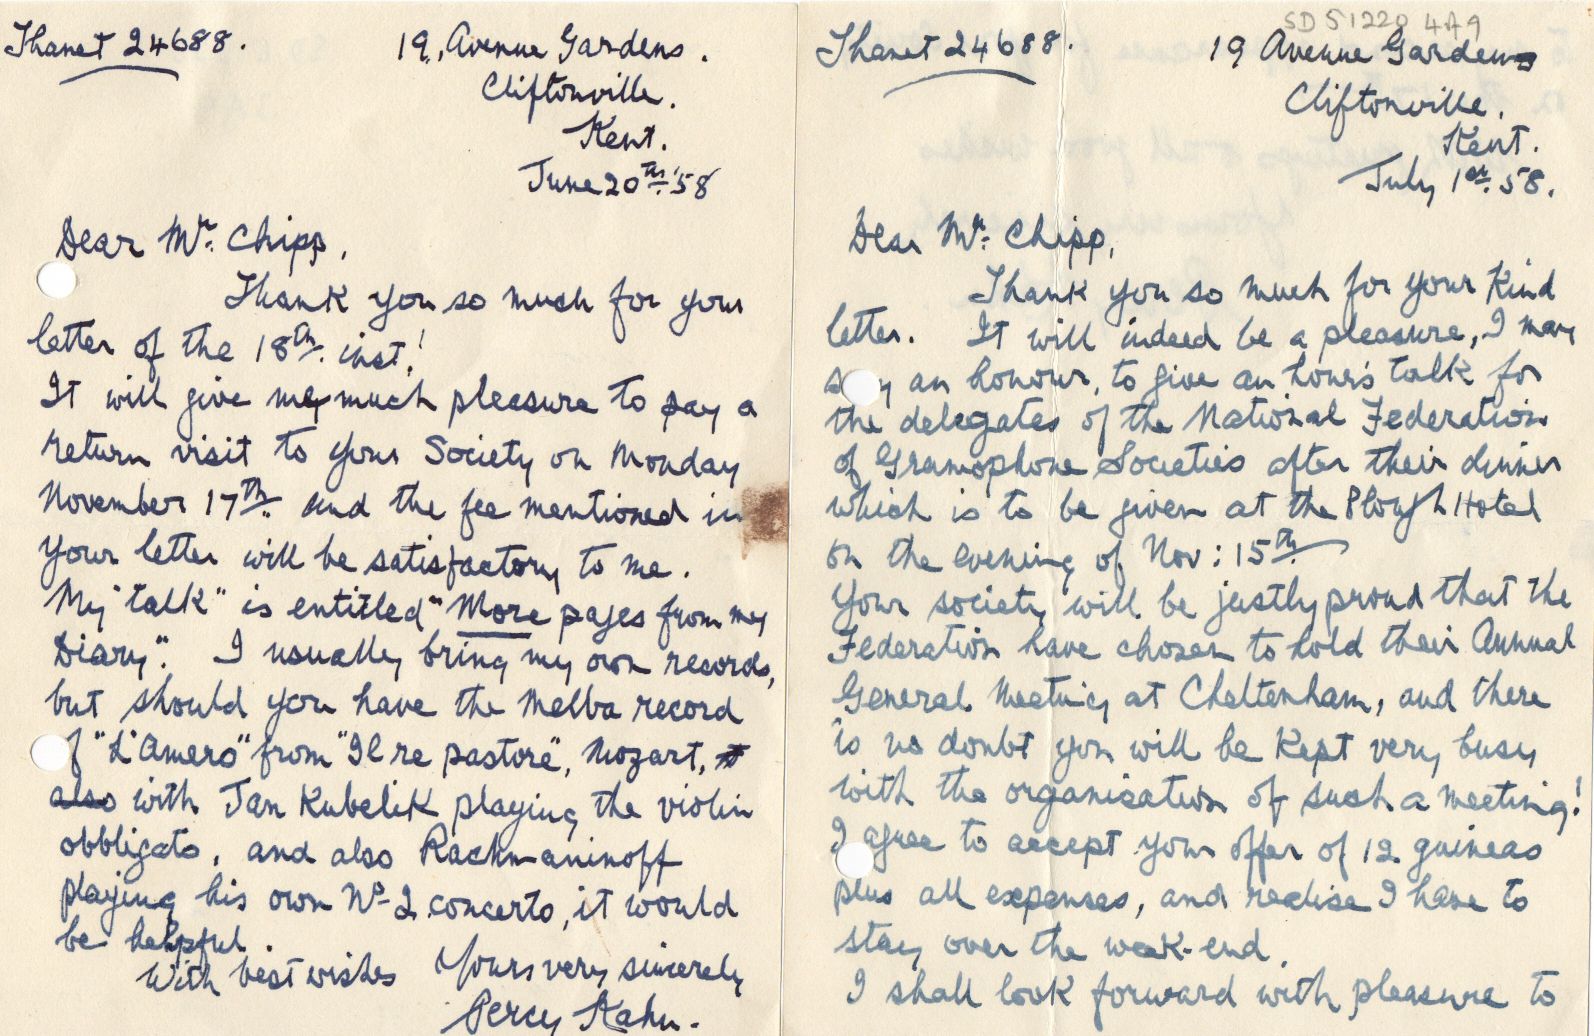 Thanet 24688.
19, Avenue Gardens.
Cliftonville.
Kent.
June 20th. '58
Dear Mr. Chipp,
Thank you so much for your
letter of the 18th. inst!
It will give me much pleasure to pay a
return visit to your Society on Monday
November 17th. and the fee mentioned in
your letter will be satisfactory to me.
My "talk" is entitled "More pages from my
Diary". I usually bring my own records,
but should you have the Melba record
of "L'Amero" from "Il re pastore", Mozart,
also with Jan Kubelik playing the violin
obbligato, and also Rachmaninoff
playing his own No 2 concerto, it would
be helpful.
With best wishes Yours very sincerely
Percy Kahn.
SD 51220 4A9
Thanet 24688.
19 Avenue Gardens
Cliftonville.
Kent.
July 1st. 58.
Dear Mr. Chipp,
Thank you so much for your kind
letter. It will indeed be a pleasure, I may
say an honour, to give an hour's talk for
the delegates of the National Federation
of Gramophone Societies after their dinner
which is to be given at the Plough Hotel
on the evening of Nov: 15th.
Your society will be justly proud that the
Federation have chosen to hold their Annual
General Meeting at Cheltenham, and there
is no doubt you will be kept very busy
with the organisation of such a meeting!
I agree to accept your offer of 12 guineas
plus all expenses, and realise I have to
stay over the week-end.
I shall look forward with pleasure to